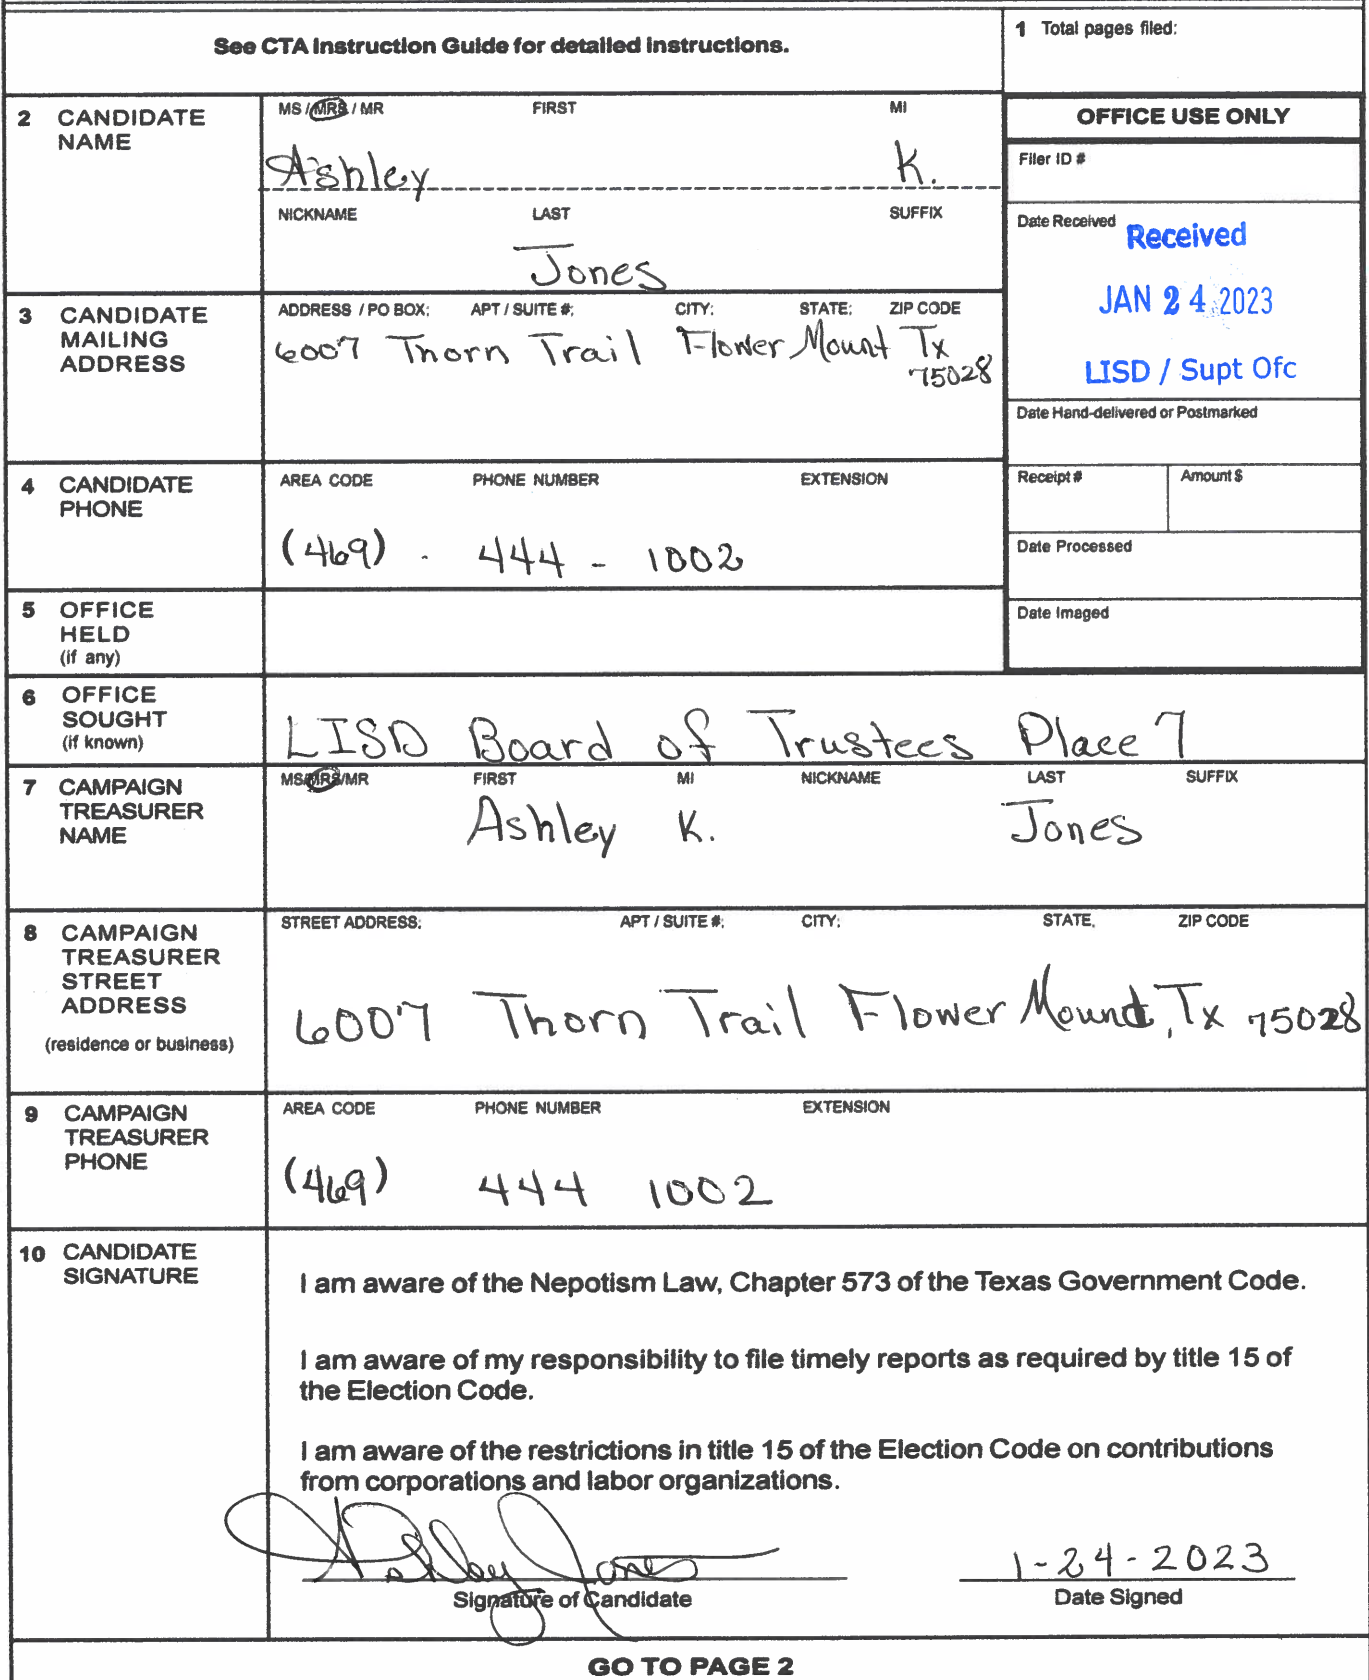 See CTA Instruction Guide for detailed instructions.
1 Total pages filed:
2 CANDIDATE NAME
MS / MRS / MR FIRST MI
Ashley K.
NICKNAME LAST SUFFIX
Jones
OFFICE USE ONLY
Filer ID #
Date Received
Received
JAN 24 2023
LISD / Supt Ofc
Date Hand-delivered or Postmarked
Receipt # Amount $
Date Processed
Date Imaged
3 CANDIDATE MAILING ADDRESS
ADDRESS / PO BOX; APT / SUITE #; CITY; STATE; ZIP CODE
6007 Thorn Trail Flower Mount Tx
75028
4 CANDIDATE PHONE
AREA CODE PHONE NUMBER EXTENSION
(469) - 444 - 1002
5 OFFICE HELD (if any)
6 OFFICE SOUGHT (if known)
LISD Board of Trustees Place 7
7 CAMPAIGN TREASURER NAME
MS/MRS/MR FIRST MI NICKNAME LAST SUFFIX
Ashley K. Jones
8 CAMPAIGN TREASURER STREET ADDRESS (residence or business)
STREET ADDRESS; APT / SUITE #; CITY; STATE; ZIP CODE
6007 Thorn Trail Flower Mound, Tx 75028
9 CAMPAIGN TREASURER PHONE
AREA CODE PHONE NUMBER EXTENSION
(469) 444 1002
10 CANDIDATE SIGNATURE
I am aware of the Nepotism Law, Chapter 573 of the Texas Government Code.
I am aware of my responsibility to file timely reports as required by title 15 of
the Election Code.
I am aware of the restrictions in title 15 of the Election Code on contributions
from corporations and labor organizations.
Ashley Jones 1-24-2023
Signature of Candidate Date Signed
GO TO PAGE 2